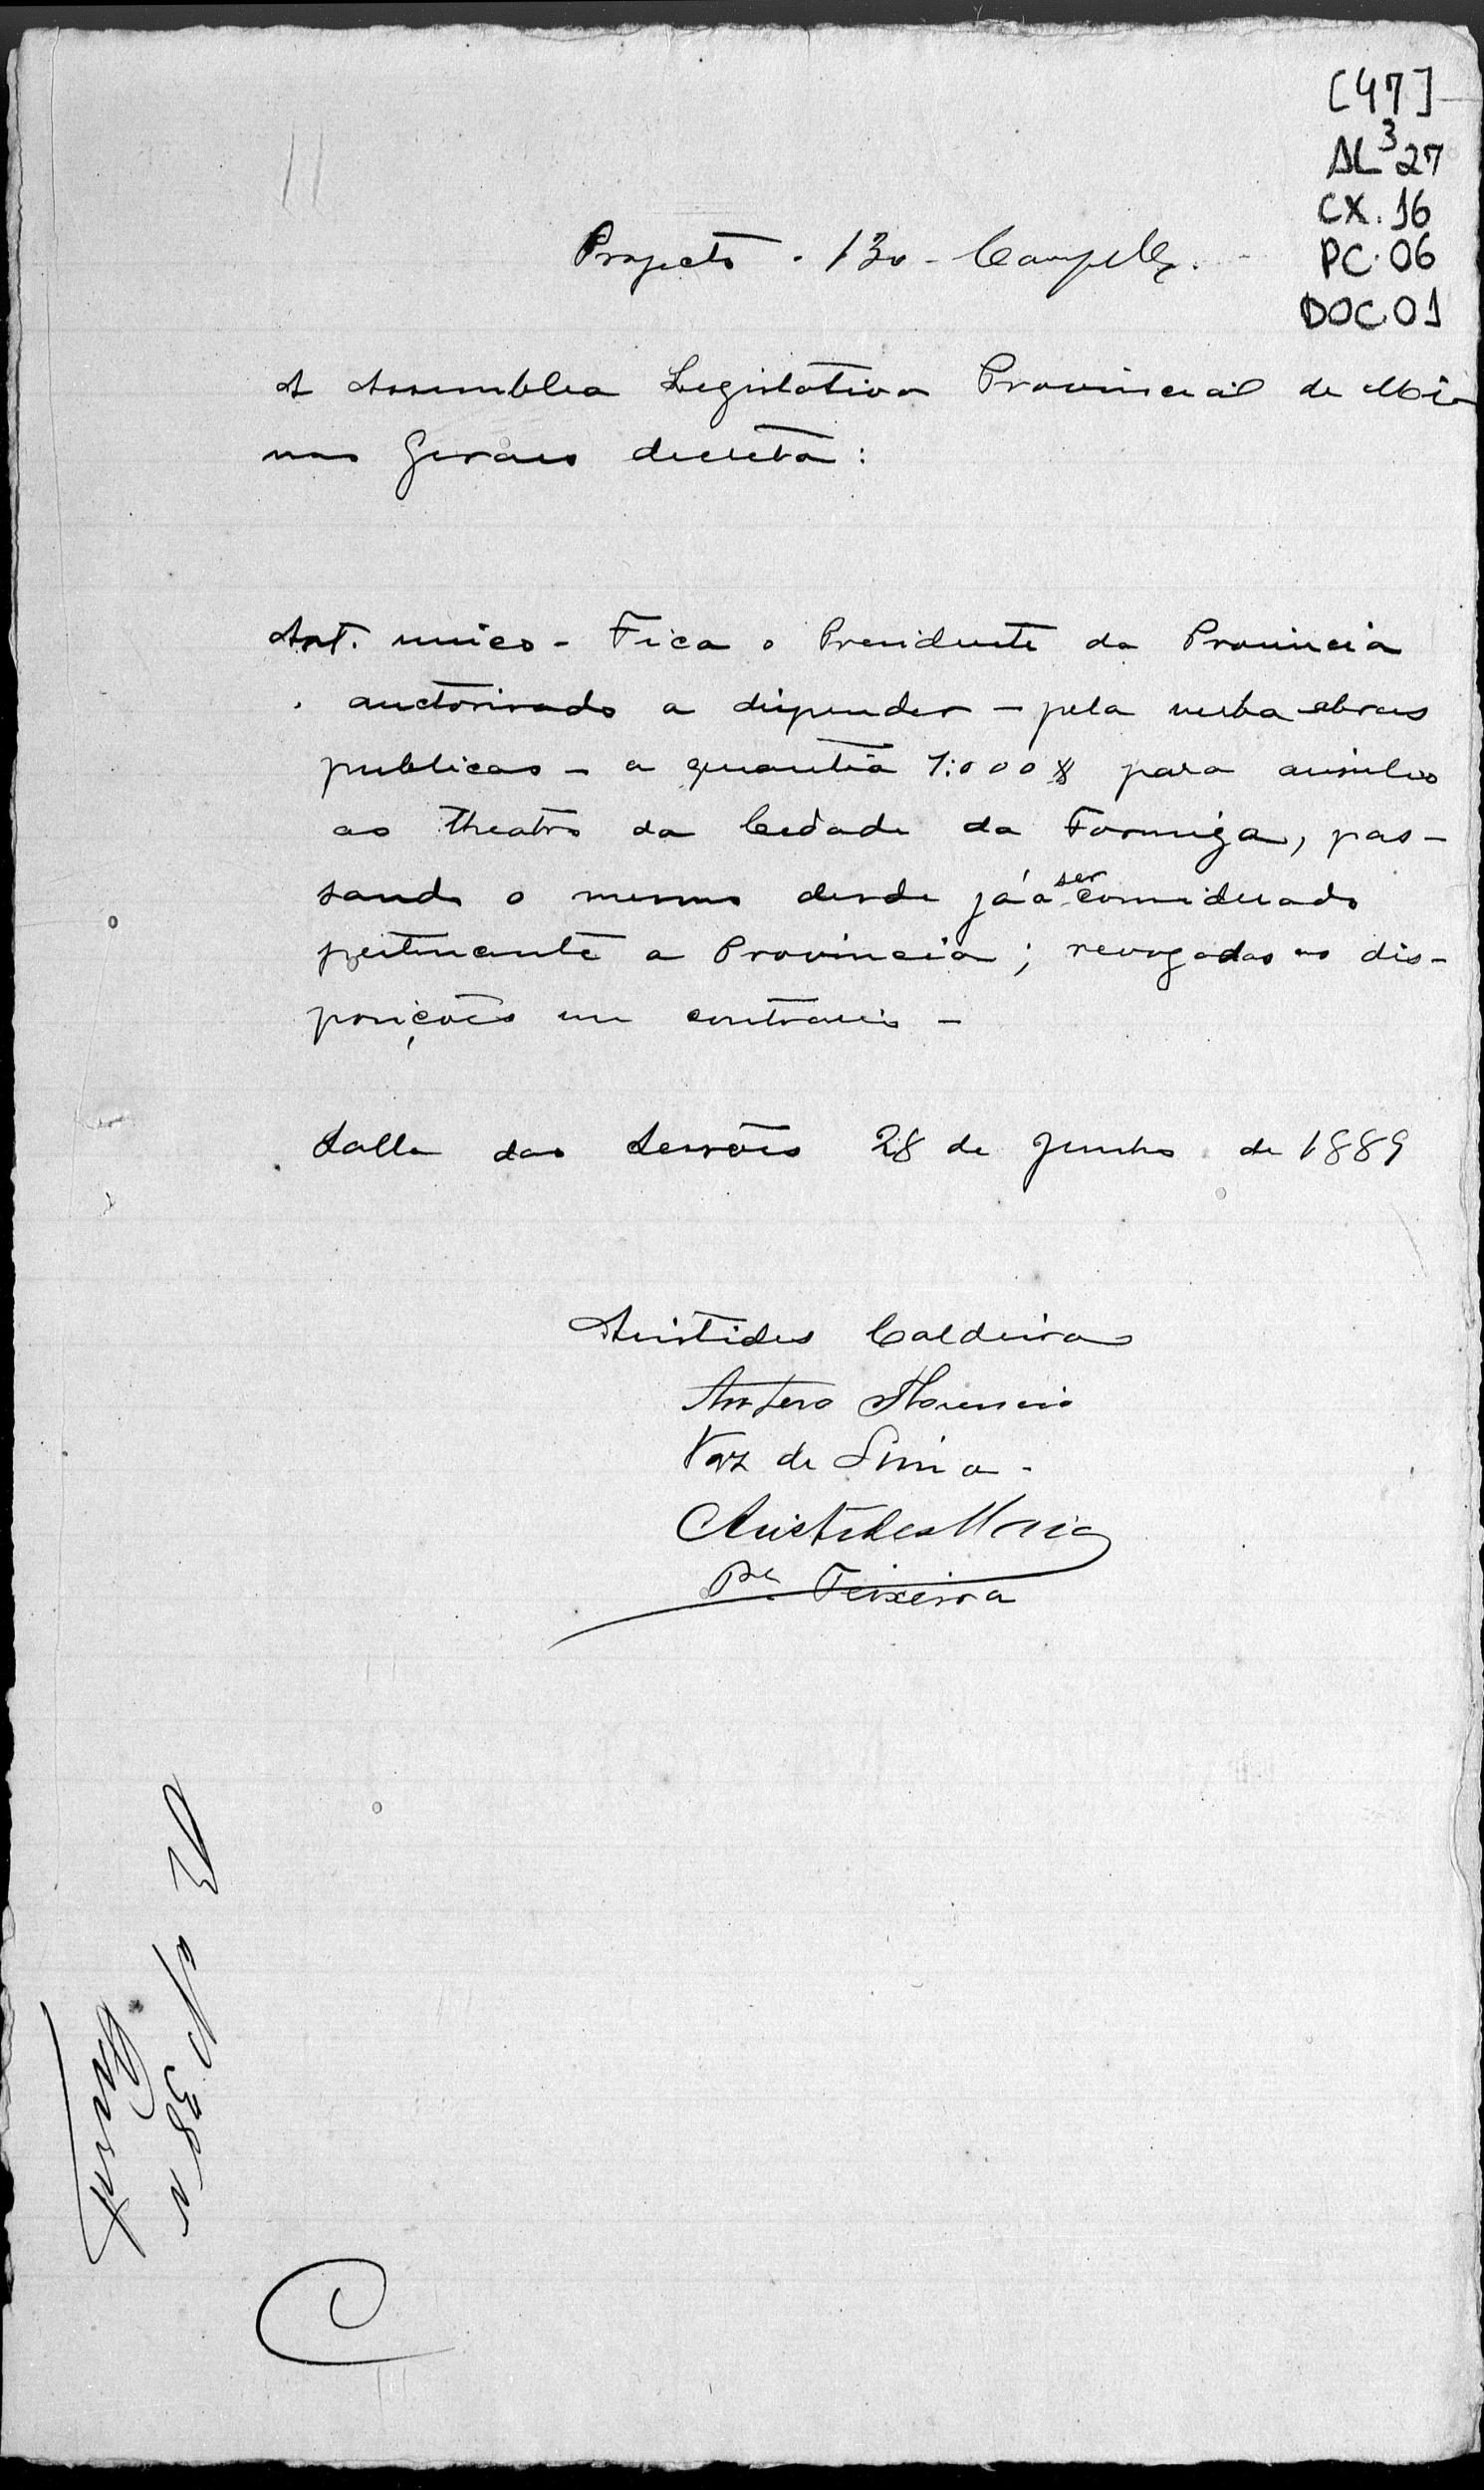 [47]
AL 3 27
CX. 16
PC. 06
DOC 01
Projecto - 130 -
A Assemblea Legislativa Provincial de Mi
nas Geraes decreta:
Art. unico - Fica o Presidente da Provincia
auctorisado a dispender - pela verba obras
publicas - a quantia 1:000$ para auxilio
ao theatro da Cidade da Formiga, pas-
sando o mesmo desde já a ser considerado
pertencente a Provincia; revogadas as dis-
posições em contrario -
Salla das Sessões 28 de Junho de 1889
Aristides Caldeira
Antero Florencio
Vaz de Lima -
Aristides Maia
Pe. Teixeira